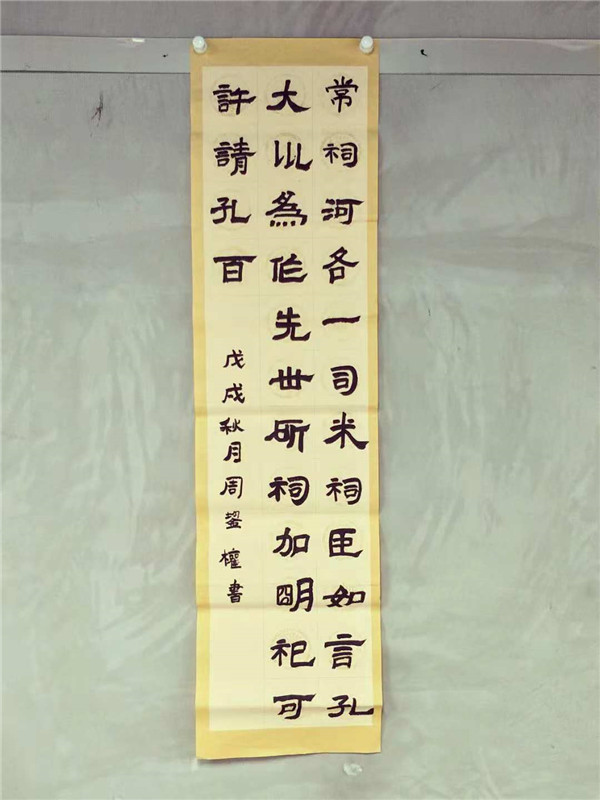 常祠河各一司米祠臣如言孔
大川為作先世所祠加朙祀可
許請孔百
戊戌秋月周權書